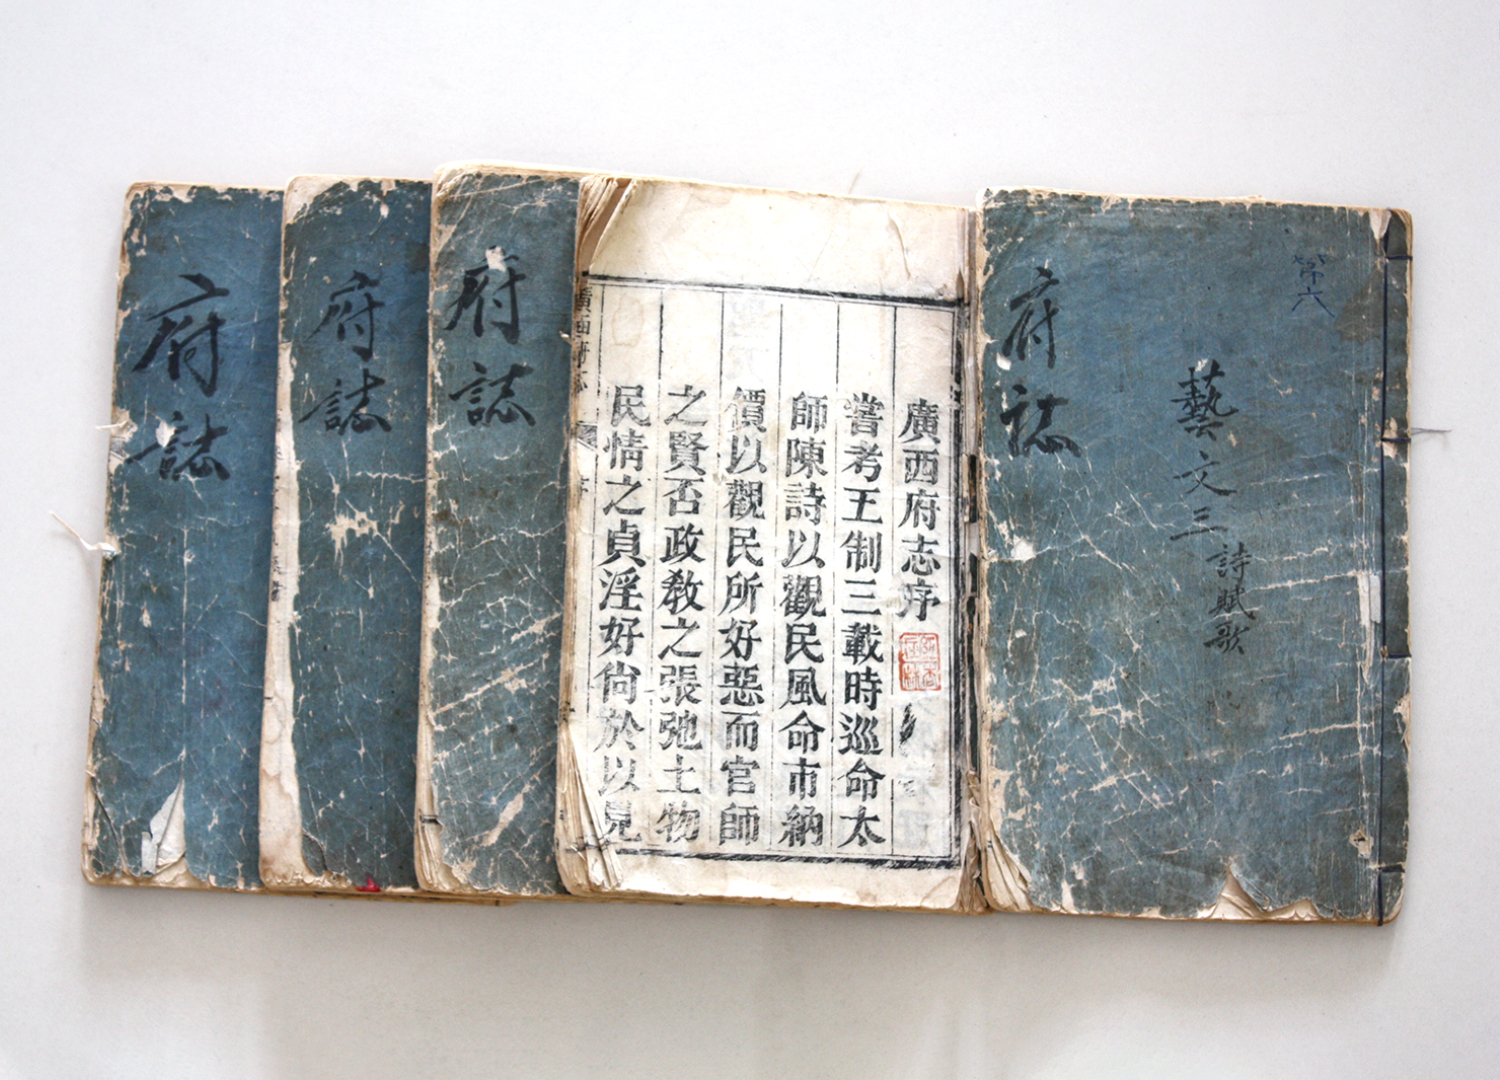 府誌
府誌
府誌
廣西府志序
嘗考王制三載時巡命太
師陳詩以觀民風命市納
價以觀民所好惡而官師
之賢否政教之張弛土物
民情之貞淫好尙於以見
府誌
藝文三 詩賦歌
第六